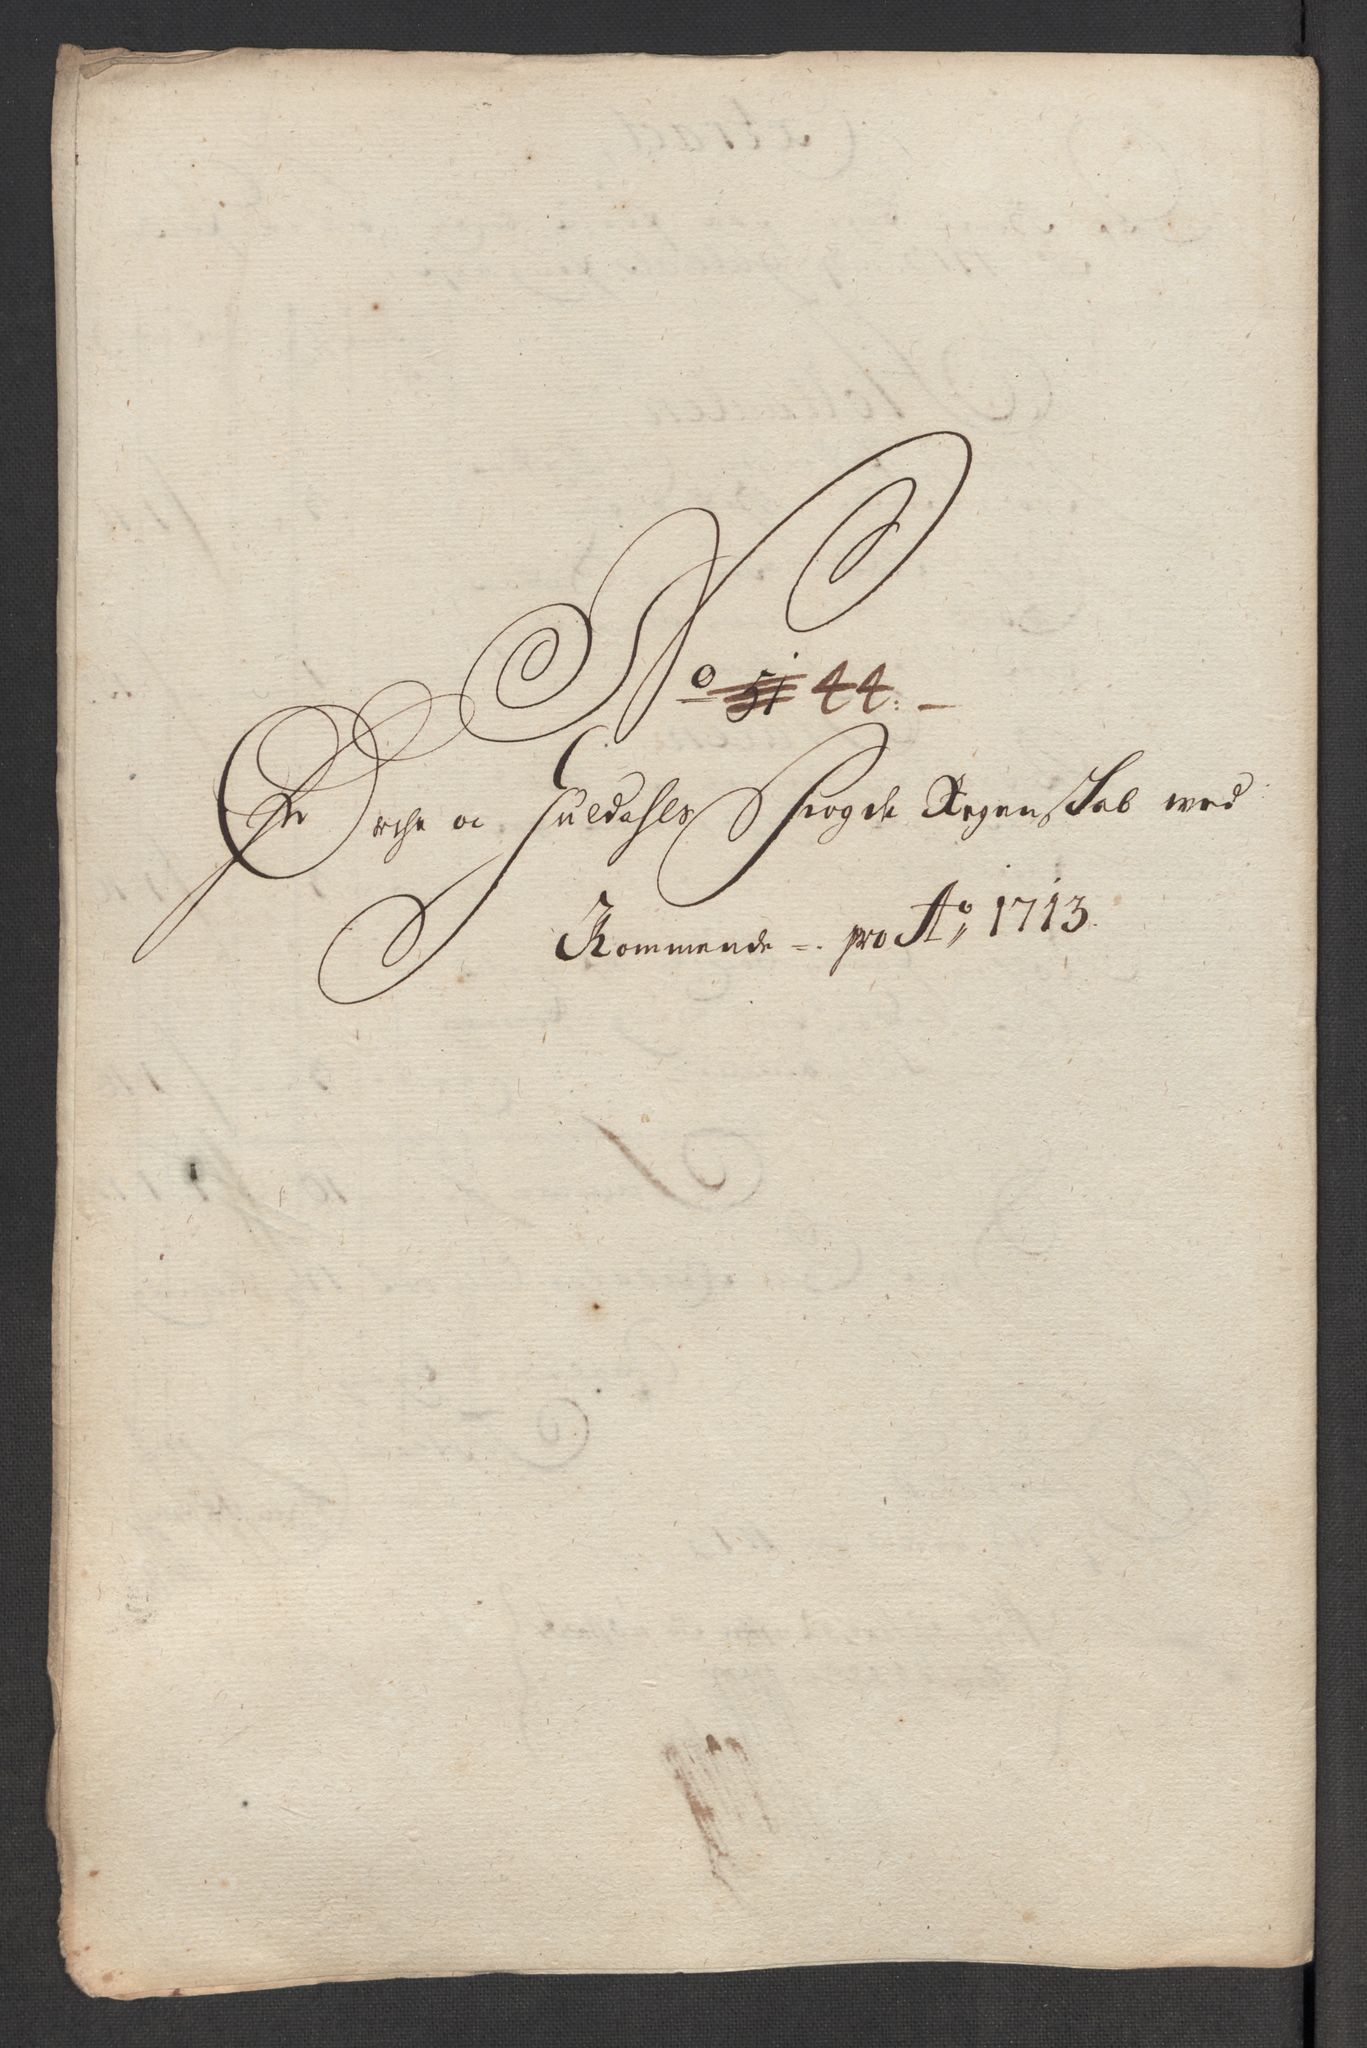 No 51 44.
Orche oc Guldahls Fogde Regenskab wed
Kommende pro Ao 1713.